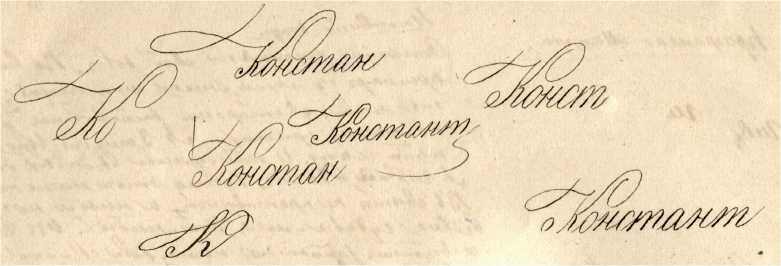 Констан
Конст
Ко
Констант
Констан
Констант
К